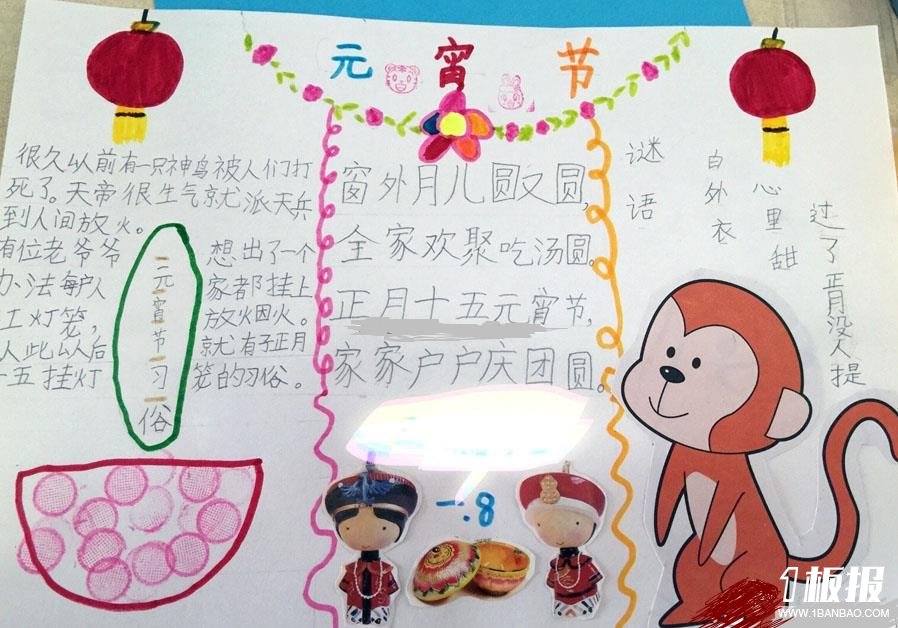 元宵节
很久以前有一只神鸟被人们打
死了。天帝很生气就派天兵
到人间放火。
有位老爷爷 想出了一个
办法每户人 家都挂上
灯笼， 放烟火。
此以后 就有了正月
十五挂灯 笼的习俗。
元宵节习俗
窗外月儿圆又圆，
全家欢聚吃汤圆。
正月十五元宵节，
家家户户庆团圆。
一.8
谜语
白外衣
心里甜
过了正月没人提
1板报
WWW.1BANBAO.COM